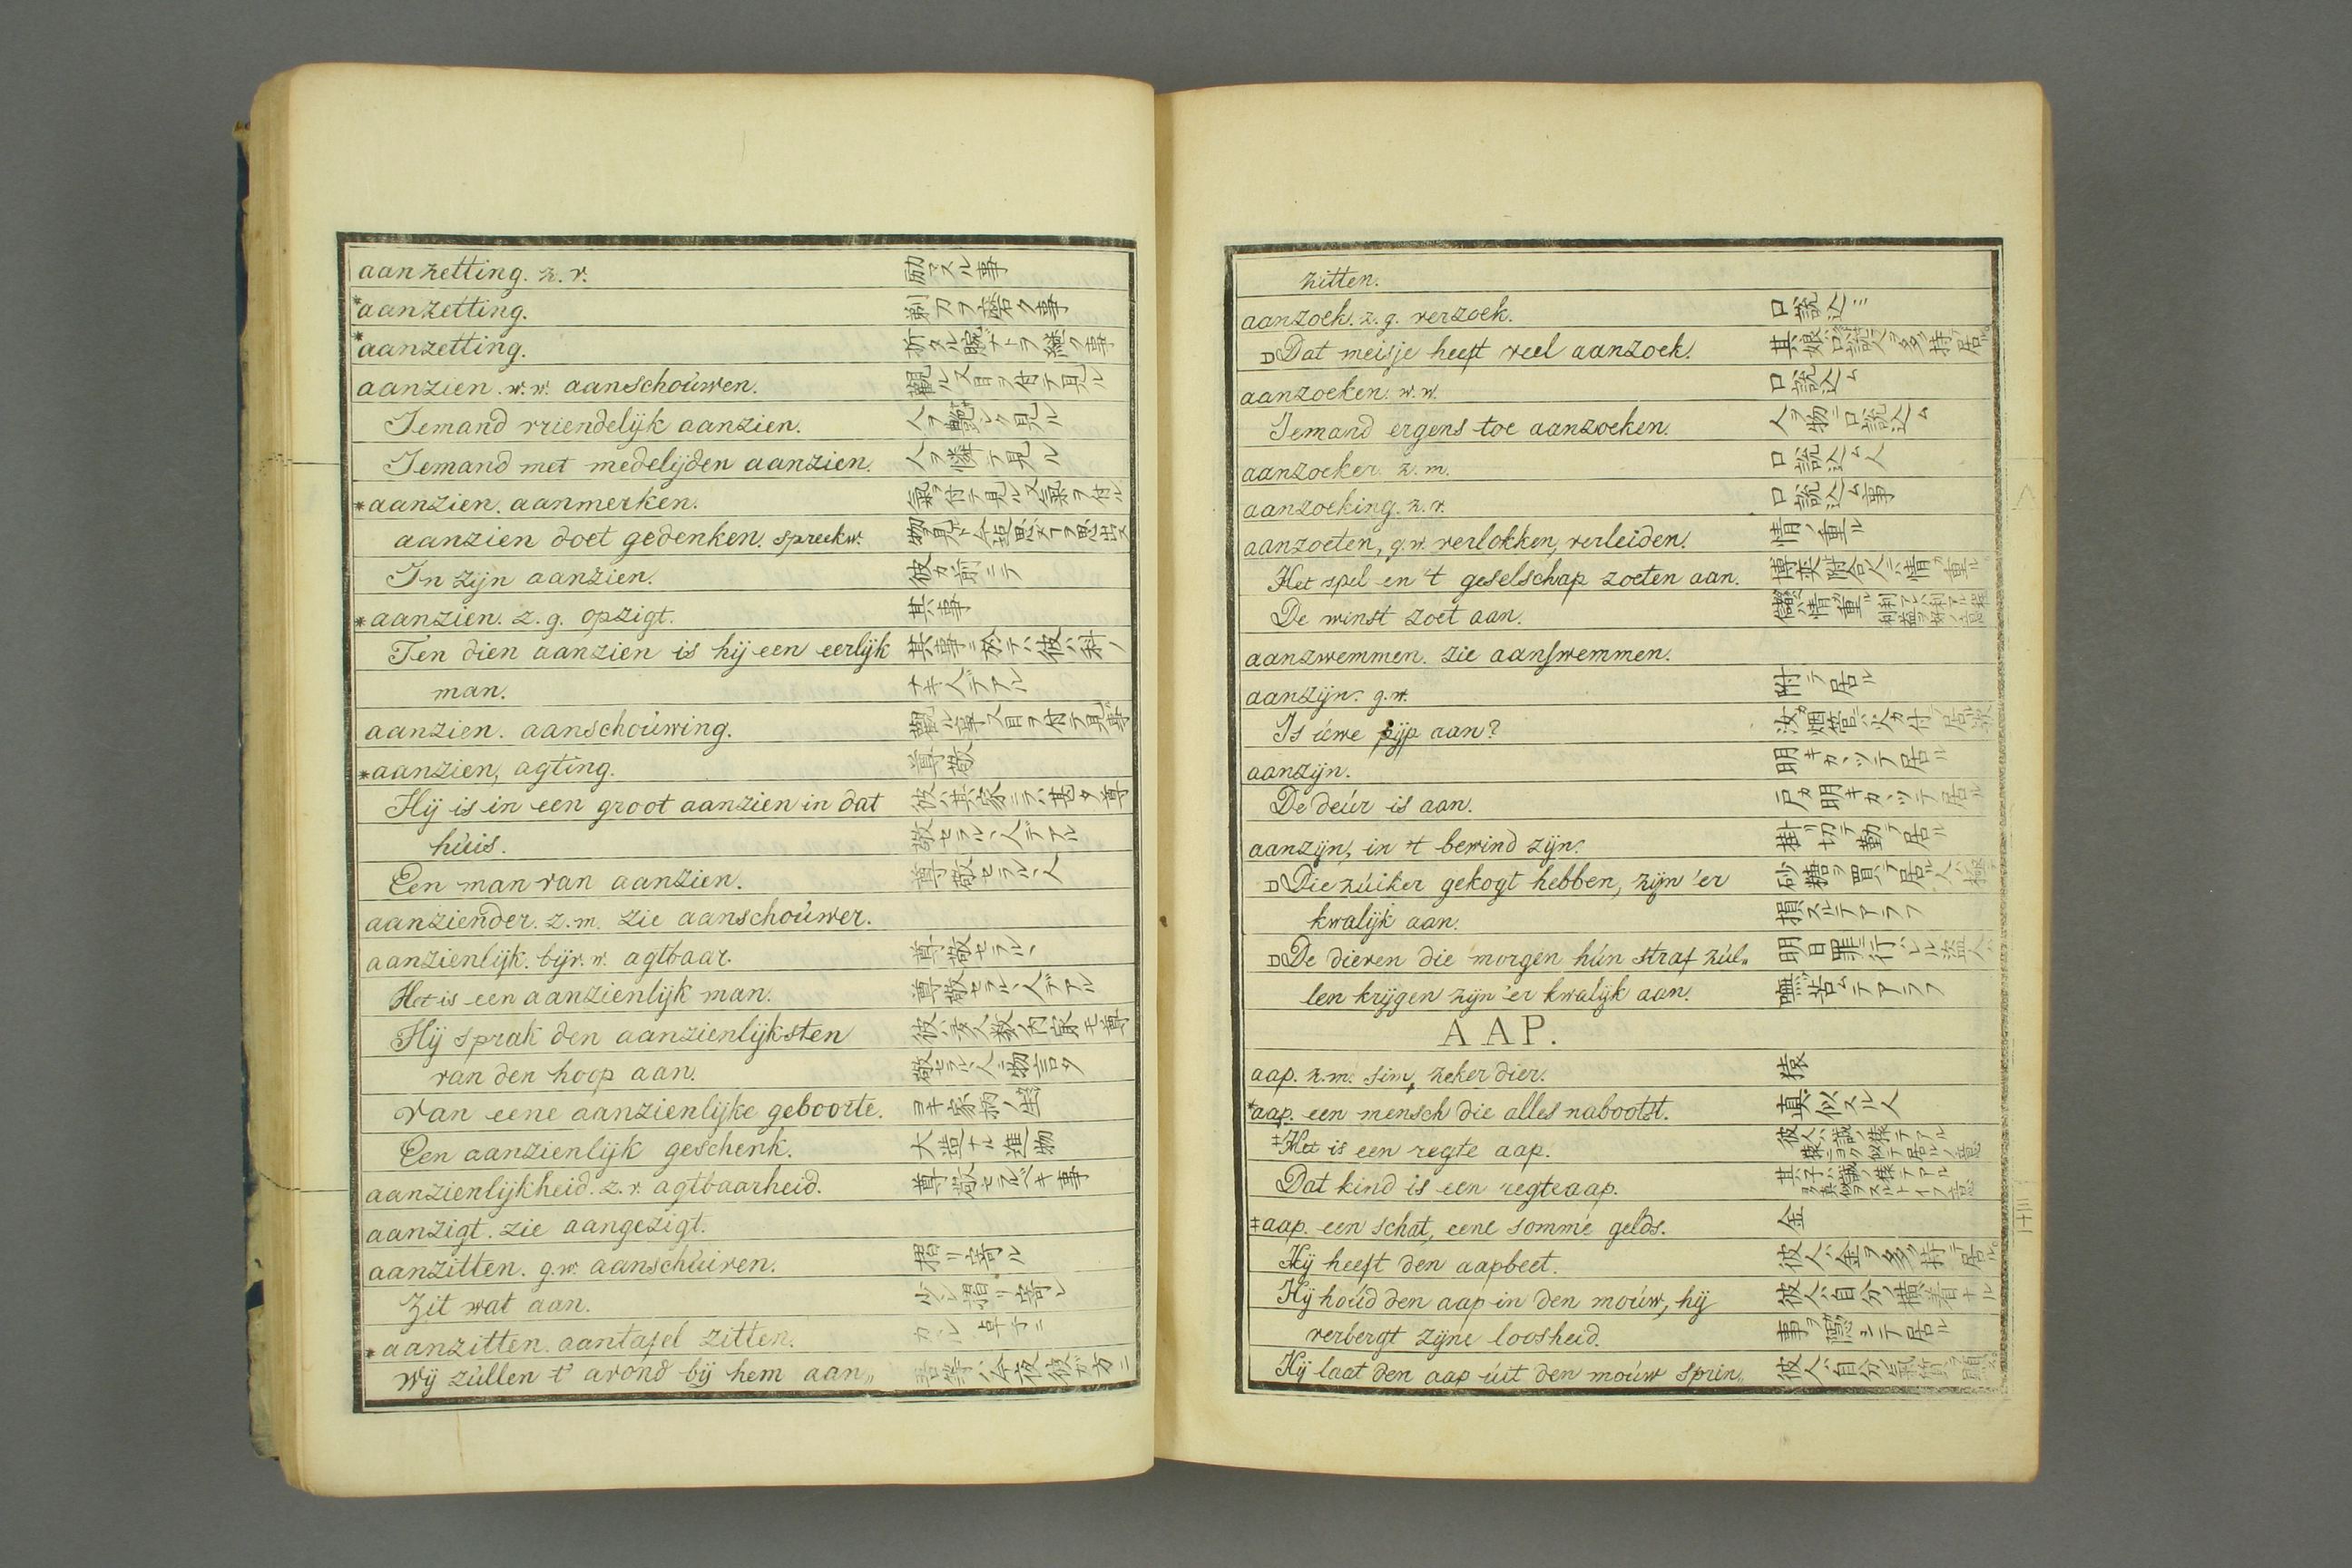 aanzetting. z. v. 励マスル事
*aanzetting. 剃刀ヲ磨ク事
*aanzetting. 折タル腕ナトヲ継ク事
aanzien. w. w. aanschoúwen. 觀ル又目ヲ付テ見ル
Iemand vriendelijk aanzien. 人ヲ艶シク見ル
Iemand met medelijden aanzien. 人ヲ憐テ見ル
*aanzien. aanmerken. 氣ヲ付テ見ル又氣ヲ付ル
aanzien doet gedenken. spreekw.
In zijn aanzien. 彼カ前ニテ
*aanzien. z. g. opzigt. 其事
Ten dien aanzien is hij een eerlijk 其事ニ於テハ彼ハ科ノ
man. ナキ人デアル
aanzien. aanschoúwing. 觀ル事又目ヲ付テ見ル事
*aanzien, agting. 尊敬
Hij is in een groot aanzien in dat 彼ハ其家ニテハ甚タ尊
húis. 敬セラルヽ人デアル
Een man van aanzien. 尊敬セラルヽ人
aanziender. z. m. zie aanschoúwer.
aanzienlijk. bijv. w. agtbaar. 尊敬セラルヽ
Het is een aanzienlijk man. 尊敬セラルヽ人デアル
Hij sprak den aanzienlijksten
van den hoop aan.
van eene aanzienlijke geboorte.
Een aanzienlijk geschenk. 大造ナル進物
aanzienlijkheid. z. v. agtbaarheid. 尊敬セラルベキ事
aanzigt. zie aangezigt.
aanzitten. g. w. aanschúiven. 摺リ寄ル
Zit wat aan. 少シ摺リ寄レ
*aanzitten. aantafel zitten.
Wij zúllen t' avond bij hem aan„ 吾等ハ今夜彼ガ方ニ
zitten.
aanzoek. z. g. verzoek. 口説込ミ
Dat meisje heeft veel aanzoek.
aanzoeken. w. w. 口説込ム
Iemand ergens toe aanzoeken. 人ヲ物ニ口説込ム
aanzoeker. z. m. 口説込ム人
aanzoeking. z. v. 口説込ム事
aanzoeten, g. w. verlokken, verleiden. 情ノ重ル
Het spel en 't geselschap zoeten aan.
De winst zoet aan.
aanzwemmen. zie aanswemmen.
aanzijn. g. w. 附テ居ル
Is úwe pijp aan?
aanzijn. 明キカヽツテ居ル
De deúr is aan. 戸カ明キカヽツテ居ル
aanzijn, in 't bewind zijn. 掛リ切テ勤テ居ル
Die zúiker gekogt hebben, zijn 'er
kwalijk aan. 損スルテアラフ
De dieven die morgen hún straf zúl„
len krijgen zijn 'er kwalijk aan. 嘸苦ムテアラフ
AAP.
aap. z. m. sim, zeker dier. 猿
*aap. een mensch die alles nabootst. 真似スル人
‡Het is een regte aap.
Dat kind is een regte aap.
‡aap. een schat, eene somme gelds. 金
Hij heeft den aap beet. 彼人ハ金ヲ多ク持テ居ル
Hij hoúd den aap in den moúw, hij 彼人ハ自分ノ横着ナル
verbergt zijne loosheid. 事ヲ隱シテ居ル
Hij laat den aap úit den moúw sprin„